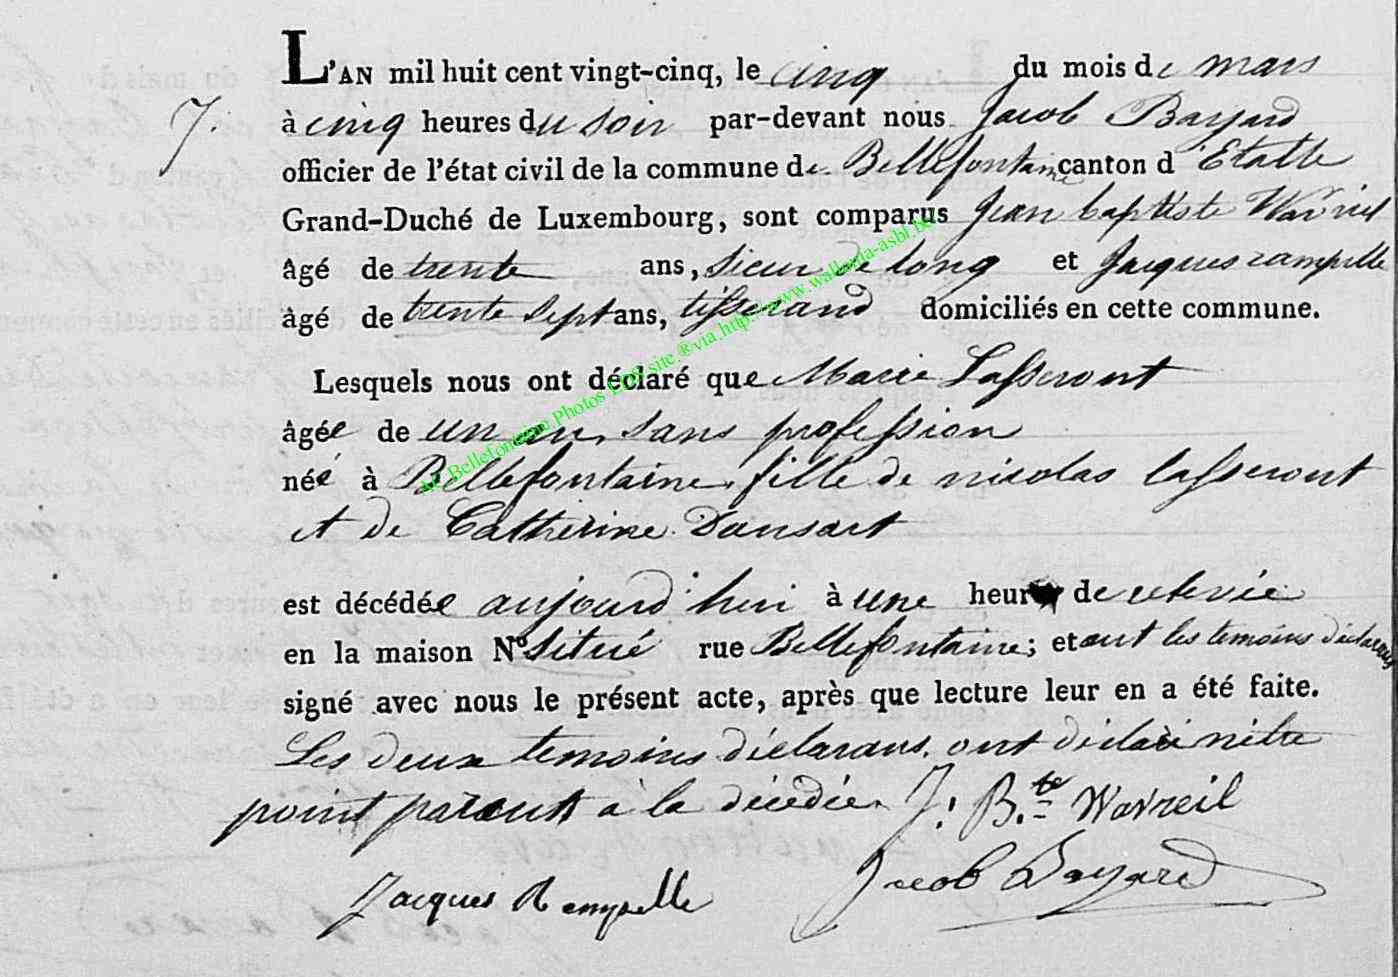 L'AN mil huit cent vingt-cinq, le cinq du mois de mars
7. à cinq heures du soir par-devant nous Jacob Bayard
officier de l'état civil de la commune de Bellefontaine canton d'Etalle
Grand-Duché de Luxembourg, sont comparus Jean baptiste Wavreil
âgé de trente ans, sieur de long et Jacques rampelle
âgé de trente sept ans, tisserand domiciliés en cette commune.
Lesquels nous ont déclaré que Marie Lasseront
âgée de un an, sans profession
née à Bellefontaine, fille de nicolas Lasseront
et de Catherine Dansart
est décédée aujourd'hui à une heure de relevée
en la maison N° Situé rue Bellefontaine; et ont les temoins déclarans
signé avec nous le présent acte, après que lecture leur en a été faite.
Les deux temoins déclarans, ont déclaré nêtre
point parents à la décédée. J. B.te Wavreil
Jacques Rampelle Jacob Bayard
AP Bellefontaine Photos DVD site @via http://www.wallonia-asbl.be